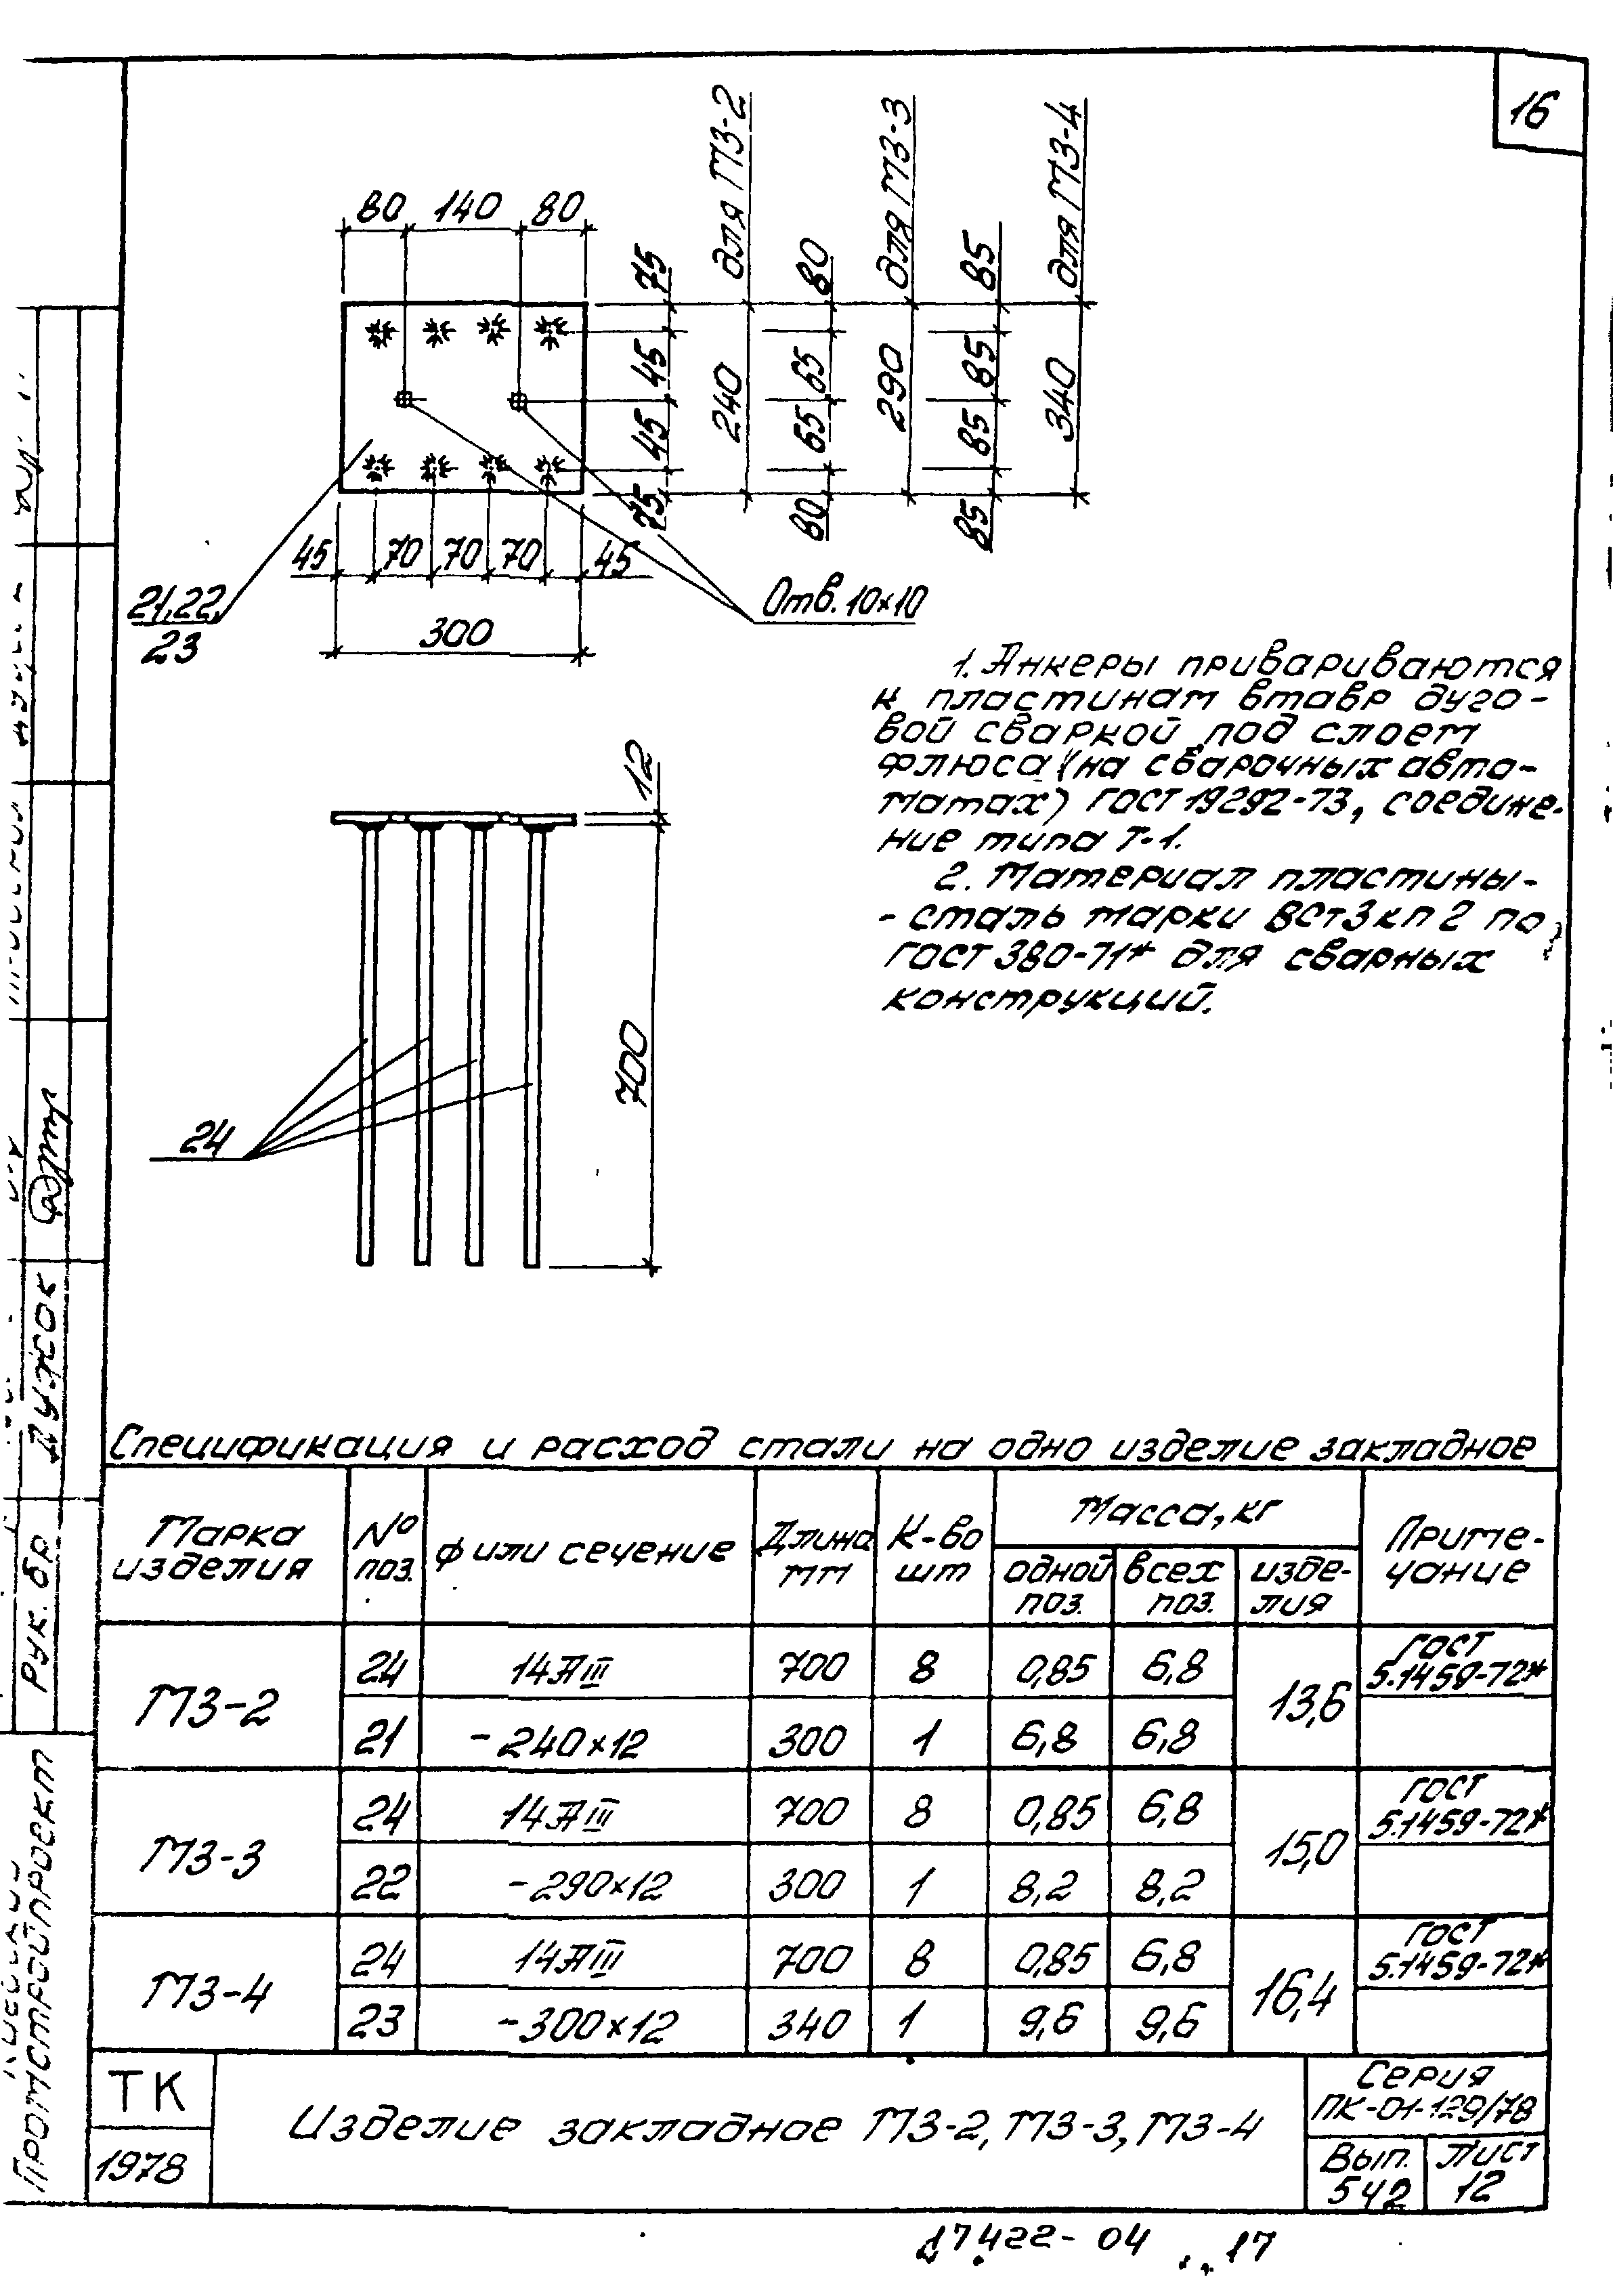 16
80 140 80
75 45 45 75
для МЗ-2
240
80 65 65 80
для МЗ-3
290
85 85 85 85
для МЗ-4
340
45 70 70 70 45
300
21,22,
23
Отв. 10×10
12
700
24
1. Анкеры привариваются
к пластинам втавр дуго-
вой сваркой под слоем
флюса (на сварочных авто-
матах) ГОСТ 19292-73, соедине-
ние типа Т-1.
2. Материал пластины-
- сталь марки ВСт3кп2 по
ГОСТ 380-71* для сварных
конструкций.
Спецификация и расход стали на одно изделие закладное
Марка изделия | № поз. | Ф или сечение | Длина мм | К-во шт | Масса, кг | Приме-чание
одной поз. | всех поз. | изде-лия
МЗ-2 | 24 | 14АIII | 700 | 8 | 0,85 | 6,8 | 13,6 | ГОСТ 5.1459-72*
21 | -240×12 | 300 | 1 | 6,8 | 6,8
МЗ-3 | 24 | 14АIII | 700 | 8 | 0,85 | 6,8 | 15,0 | ГОСТ 5.1459-72*
22 | -290×12 | 300 | 1 | 8,2 | 8,2
МЗ-4 | 24 | 14АIII | 700 | 8 | 0,85 | 6,8 | 16,4 | ГОСТ 5.1459-72*
23 | -300×12 | 340 | 1 | 9,6 | 9,6
ТК
1978
Изделие закладное МЗ-2, МЗ-3, МЗ-4
Серия
ПК-01-129/78
Вып. 542
Лист 12
17422-04 17
Рук. бр. Лужок
Промстройпроект